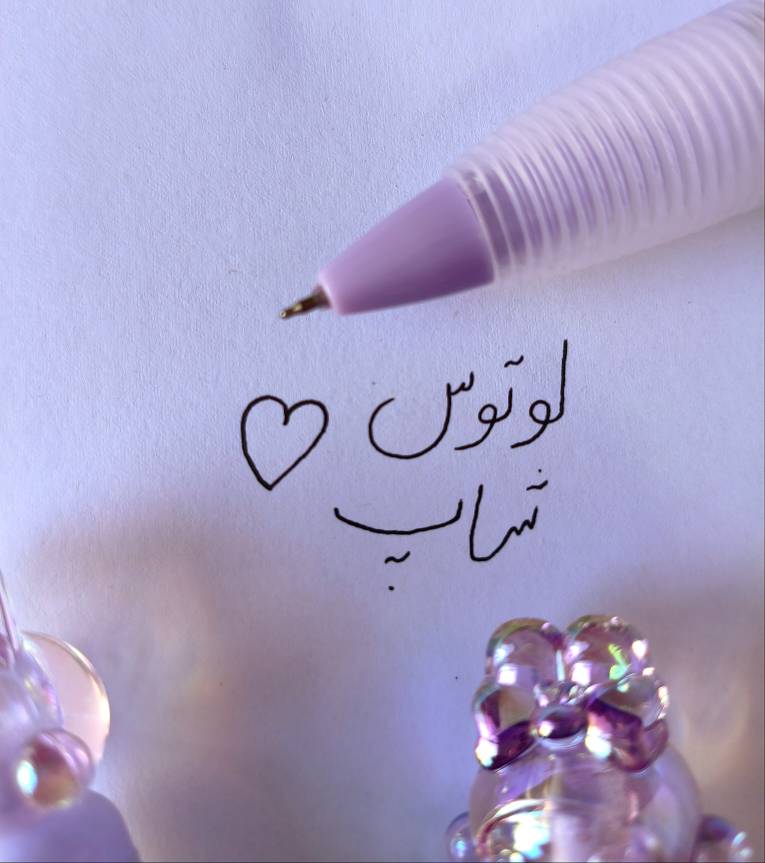 لوتوس ♡
شاپ